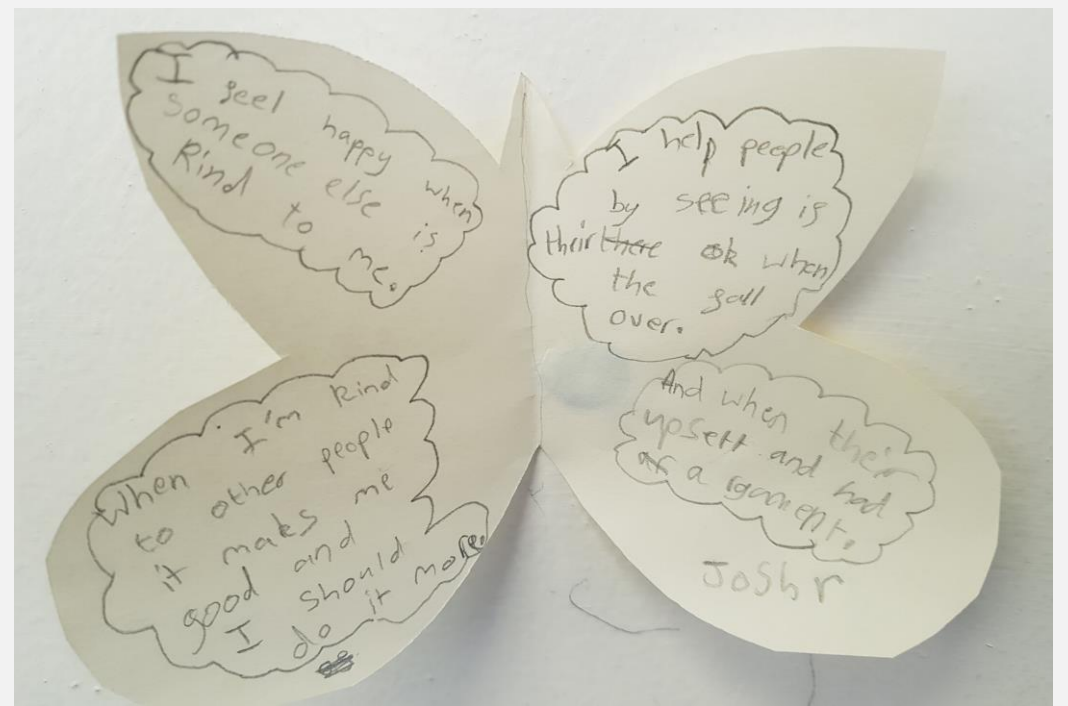 I feel happy when
someone else is
kind to me.
I help people
by seeing if
their there ok when
the fall
over.
When I'm kind
to other people
it maks me
good and
I should
do it more.
And when their
upsett and had
ar a rgument.
Josh r